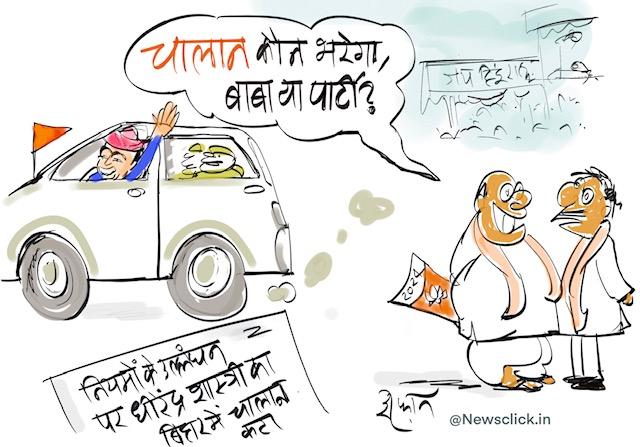 चालान कौन भरेगा,
बाबा या पार्टी?
जय हिंदू राष्ट्र
2024
नियमों के उल्लंघन
पर धीरेंद्र शास्त्री का
बिहार में चालान
कटा
इरफ़ान
@Newsclick.in